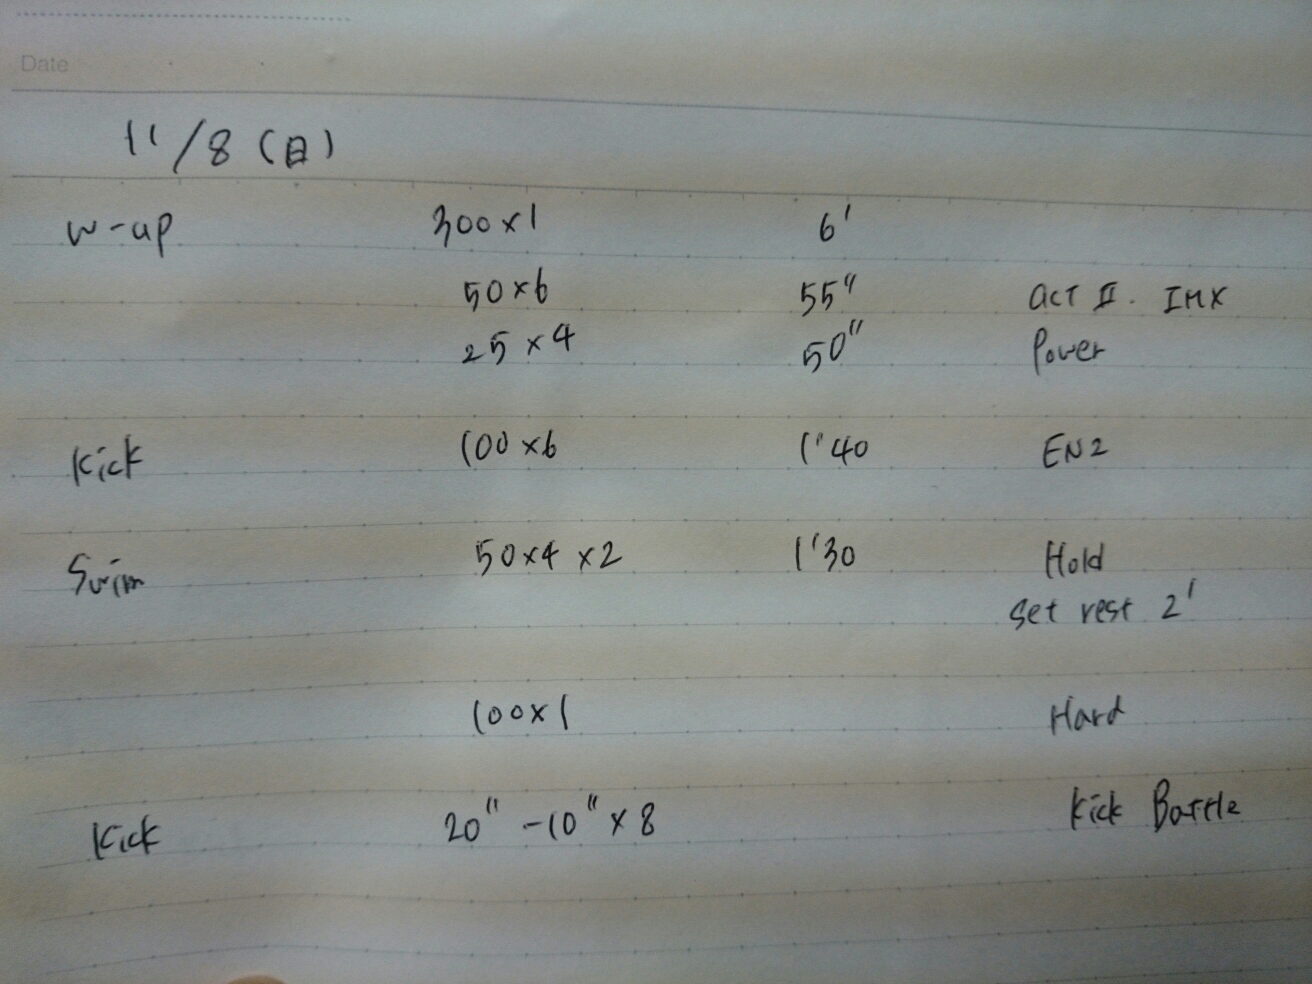 Date
11/8 (日)
W-up 300×1 6'
50×6 55" act II. IMX
25×4 50" Power
Kick 100×6 1'40 EN2
Swim 50×4×2 1'30 Hold
set rest 2'
100×1 Hard
Kick 20"-10"×8 Kick Battle